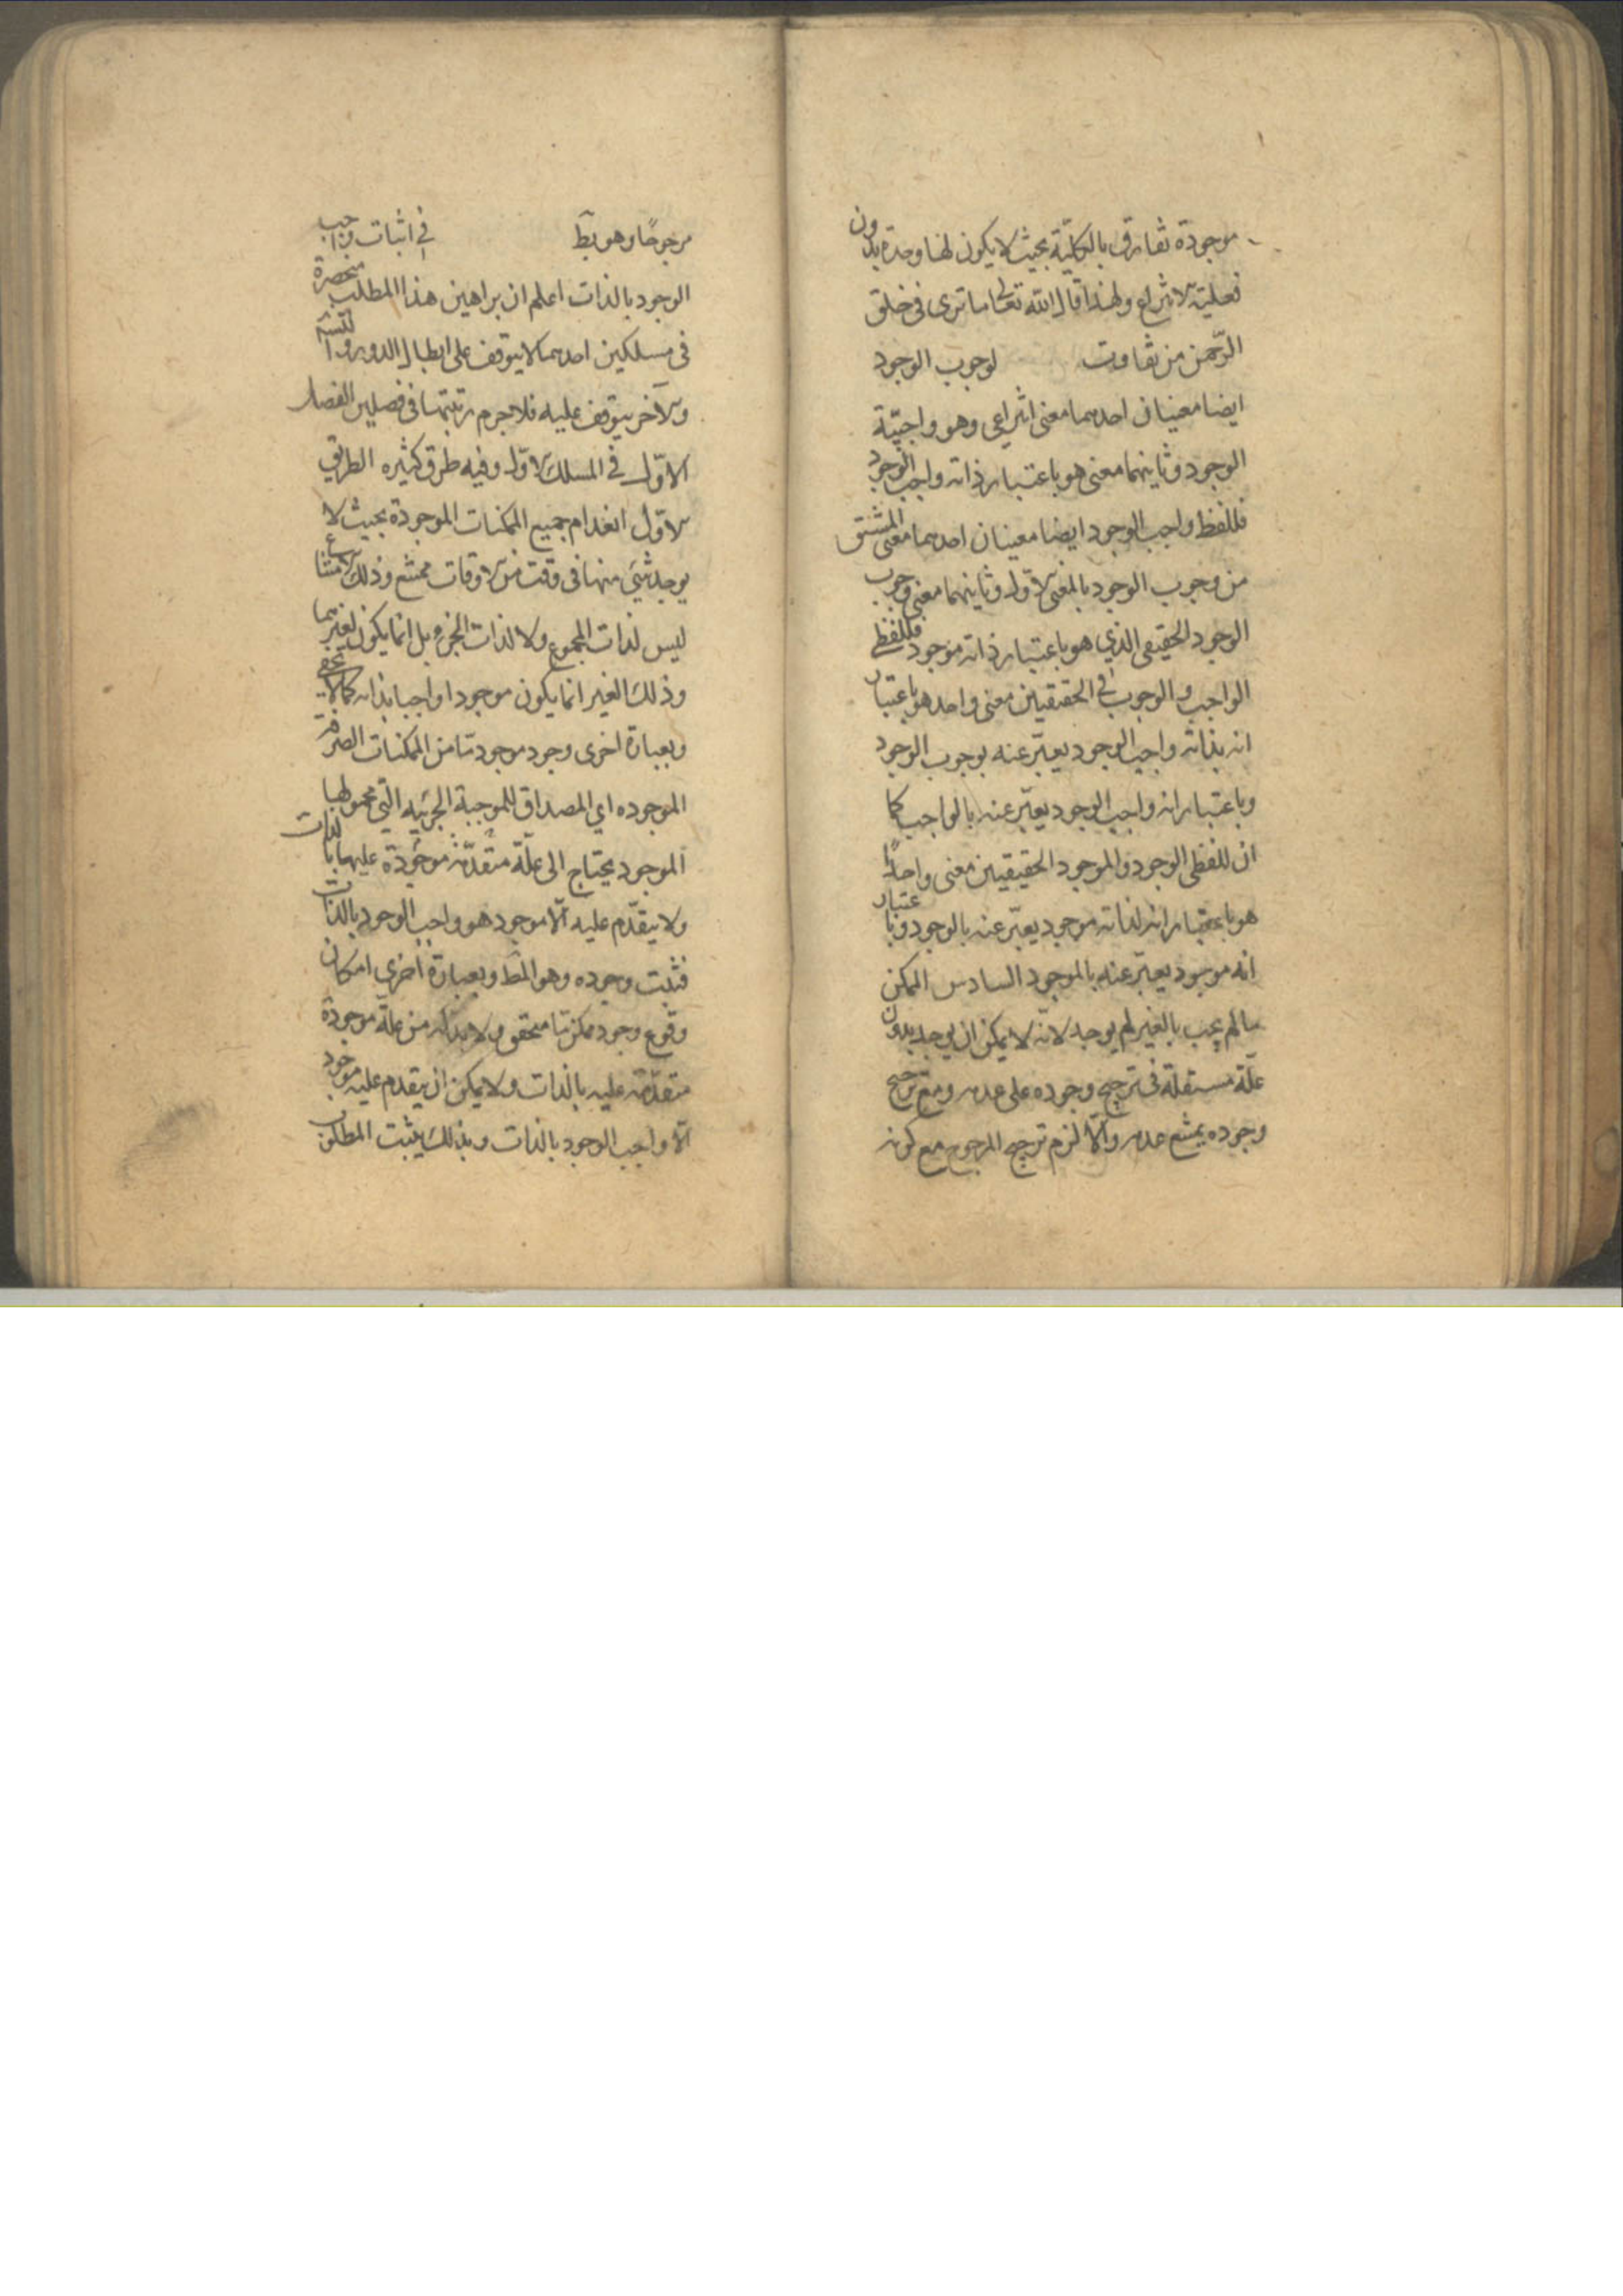 موجودة تفارق بالكليّة بحيث لا يكون لها وحدة بدون
فعلية الانتزاع ولهذا قال الله تعالى ما ترى فى خلق
الرّحمن من تفاوت لوجوب الوجود
ايضا معنيان احدهما معنى انتزاعى وهو واجبيّة
الوجود وثانيهما معنى هو باعتبار ذاته واجب الوجود
فللفظ واجب الوجود ايضا معنيان احدهما معنى المشتق
من وجوب الوجود بالمعنى الاوّل وثانيهما معنى وجوب
الوجود الحقيقى الذي هو باعتبار ذاته موجود فللفظى
الواجب والوجوب فى الحقيقيين معنى واحد هو باعتبار
انه بذاته واجب الوجود يعبّر عنه بوجوب الوجود
وباعتبار انه واجب الوجود يعبّر عنه بالواجب كما
ان للفظى الوجود والموجود الحقيقيين معنى واحداً
هو باعتبار انه لذاته موجود يعبّر عنه بالوجود وباعتبار
انه موجود يعبّر عنه بالموجود السادس الممكن
ما لم يجب بالغير لم يوجد لانّه لا يمكن ان يوجد بدون
علّة مستقلّة فى ترجيح وجوده على عدمه ومع ترجيح
وجوده يمتنع عدمه والّا لزم ترجيح المرجوح مع كونه
مرجوحًا وهو بط فى اثبات واجب
الوجود بالذات اعلم ان براهين هذا المطلب منحصرة
فى مسلكين احدهما لا يتوقف على ابطال الدور والتسـ
والآخر يتوقف عليه فلا جرم رتبتهما فى فصلين الفصل
الاوّل فى المسلك الاوّل وفيه طرق كثيره الطريق
الاوّل انعدام جميع الممكنات الموجودة بحيث لا
يوجد شئ منها فى وقت من الاوقات ممتنع وذلك الامتناع
ليس لذات المجموع ولا لذات الجزو بل انما يكون لغيرهما
وذلك الغير انما يكون موجودا واجبا بذاته كما لا يخفى
وبعبارة اخرى وجود موجود ما من الممكنات الصرفة
الموجوده اي المصداق للموجبة الجزئيه التى محمولها
الموجود يحتاج الى علّة متقدّمة موجودة عليها بالذات
ولا يتقدّم عليه الّا موجود هو واجب الوجود بالذات
فثبت وجوده وهو المط وبعبارة اخرى امكان
وقوع وجود ممكن ما متحقق ولا بد له من علّة موجودة
متقدّمة عليه بالذات ولا يمكن ان يتقدم عليه موجود
الّا واجب الوجود بالذات وبذلك يثبت المطلوب